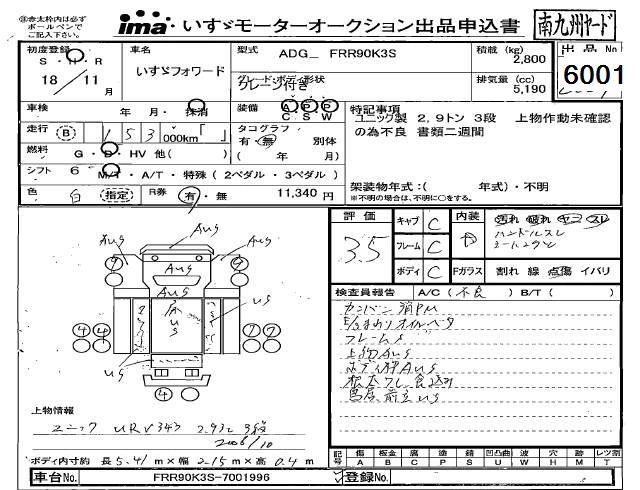 ※赤太枠内は必ず
ボールペンで
ご記入下さい。
ima・いすゞモーターオークション出品申込書
南九州ヤード
初度登録
S・H・R
18/11月
車名
いすゞフォワード
型式
ADG_ FRR90K3S
グレード・ボディ形状
クレーン付き
積載(kg)
2,800
排気量(cc)
5,190
出品No
6001
車検
年 月・抹消
装備
A P W
C S
走行
B
153
000km「 」
タコグラフ
有・無 別体
( 年 月)
燃料
G・D・HV 他( )
シフト
6 M/T・A/T・特殊(2ペダル・3ペダル)
色
白
指定
R券
有・無
11,340円
特記事項
ユニック製 2.9トン 3段 上物作動未確認
の為不良 書類二週間
架装物年式:( 年式)・不明
※不明の場合は、不明に○をする。
評価
3.5
キャブ C
フレーム C
ボディ C
内装
Fガラス
汚れ 破れ ヤニ スレ
ハンドルスレ
割れ 線 点傷 イバリ
検査員報告 A/C(不良) B/T( )
フレームS
上物AUS
AUS
AUS
AUS
AUS
AUS
US
US
US
9
9
4
4
7
7
4
上物情報
ユニック URV343 2.93t 3段
2006/10
ボディ内寸約 長5.41m×幅2.15m×高0.4m
記号
傷 板金 腐 塗 錆 凹凸曲 波 穴 歩 レツ割
A B C P S U W H M T
車台No.
FRR90K3S-7001996
登録No.